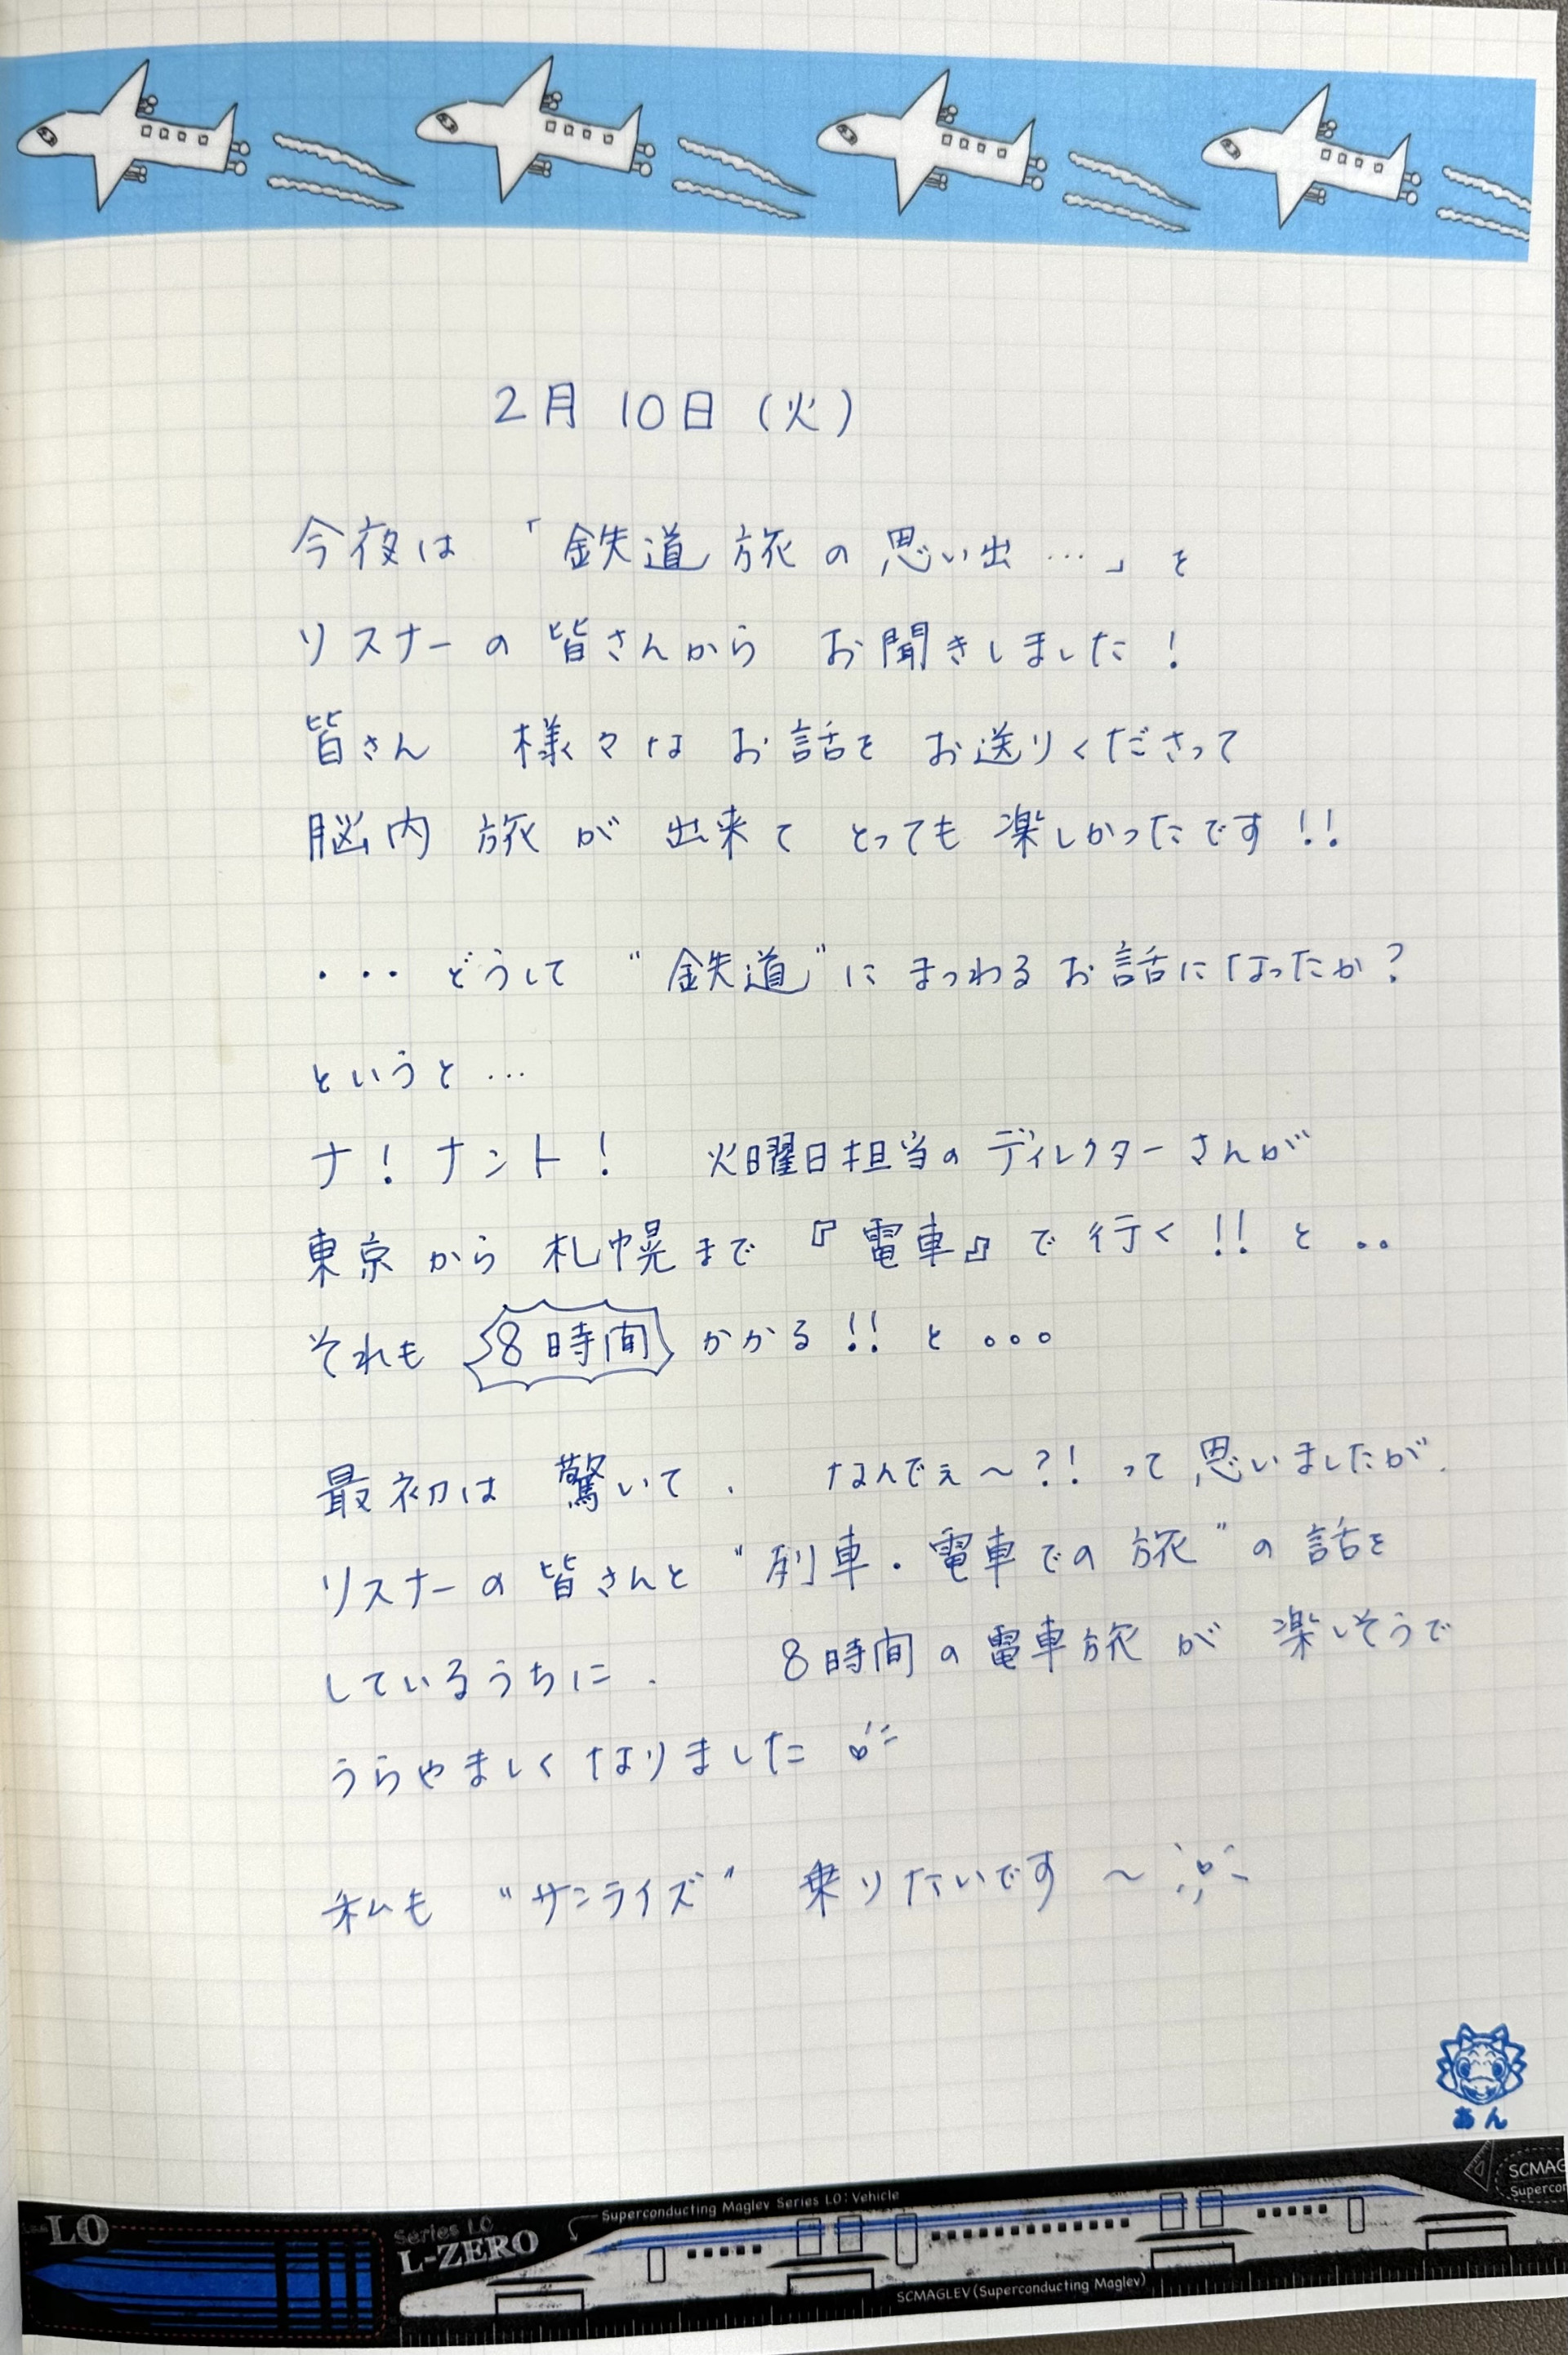 2月10日(火)
今夜は「鉄道旅の思い出…」を
リスナーの皆さんから お聞きしました!
皆さん 様々な お話を お送りくださって
脳内旅が 出来て とっても 楽しかったです!!
・・・どうして "鉄道"に まつわる お話になったか?
というと…
ナ!ナント! 火曜日担当の ディレクターさんが
東京から 札幌まで『電車』で 行く!!と‥
それも 8時間 かかる!!と。。。
最初は 驚いて、 なんでぇ〜?!って 思いましたが、
リスナーの皆さんと "列車・電車での旅"の話を
しているうちに、 8時間の電車旅が 楽しそうで
うらやましく なりました
私も "サンライズ" 乗りたいです〜
あん
LO
Series LO
L-ZERO
Superconducting Maglev Series LO: Vehicle
SCMAGLEV (Superconducting Maglev)
SCMAG
Supercon